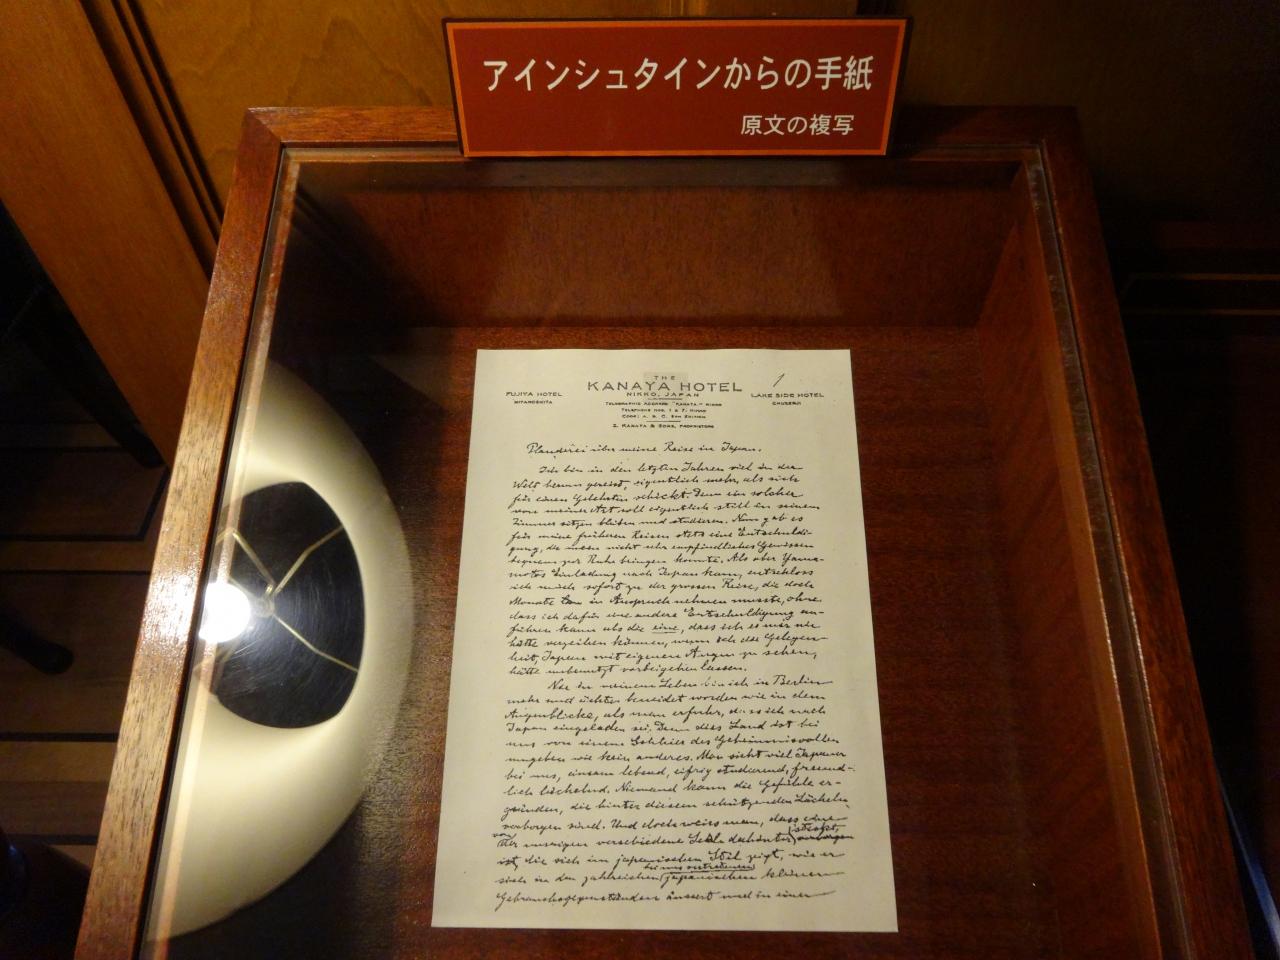 アインシュタインからの手紙
原文の複写
THE
KANAYA HOTEL
NIKKO, JAPAN
FUJIYA HOTEL
MIYANOSHITA
LAKE SIDE HOTEL
CHUZENJI
1
TELEGRAPHIC ADDRESS "KANAYA" NIKKO
TELEPHONE NOS. 1 & 7, NIKKO
CODE: A. B. C. 5TH EDITION
Z. KANAYA & SONS, PROPRIETORS
Plauderei über meine Reise in Japan.
Ich bin in den letzten Jahren viel in der
Welt herum gereist, eigentlich mehr, als sich
für einen Gelehrten schickt. Denn ein solcher
von meiner Art soll eigentlich still in seinem
Zimmer sitzen bleiben und studieren. Nun gab es
für meine früheren Reisen stets eine Entschuldi-
gung, die mein nicht sehr empfindliches Gewissen
bequem zur Ruhe bringen konnte. Als aber Yama-
motos Einladung nach Japan kam, entschloss
ich mich sofort zu der grossen Reise, die doch
Monate in Anspruch nehmen musste, ohne
dass ich dafür eine andere Entschuldigung an-
führen kann als die eine, dass ich es mir nie
hätte verzeihen können, wenn ich die Gelegen-
heit, Japan mit eigenen Augen zu sehen,
hätte unbenutzt vorbeigehen lassen.
Nie in meinem Leben bin ich in Berlin
mehr und echter beneidet worden wie in dem
Augenblicke, als man erfuhr, dass ich nach
Japan eingeladen sei. Denn dies Land ist bei
uns von einem Schleier des Geheimnisvollen
umgeben wie kein anderes. Man sieht viel Japaner
bei uns, einsam lebend, eifrig studierend, freund-
lich lächelnd. Niemand kann die Gefühle er-
gründen, die hinter diesem schützenden Lächeln
verborgen sind. Und doch weiss man, dass eine
von der unsrigen verschiedene Seele dahinter steckt, verborgen
ist, die sich im japanischen Stil zeigt, wie er
sich in den zahlreichen japanischen kleinen
Gebrauchsgegenständen äussert und in einer